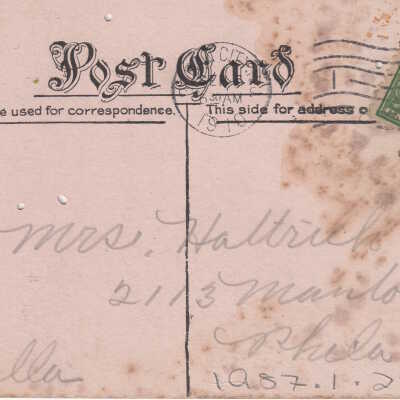 Post Card
e used for correspondence. This side for address o
CITY
30 AM
1910
Mrs. Haltrich
2113 Manlo
Phila
lla
1987.1.2